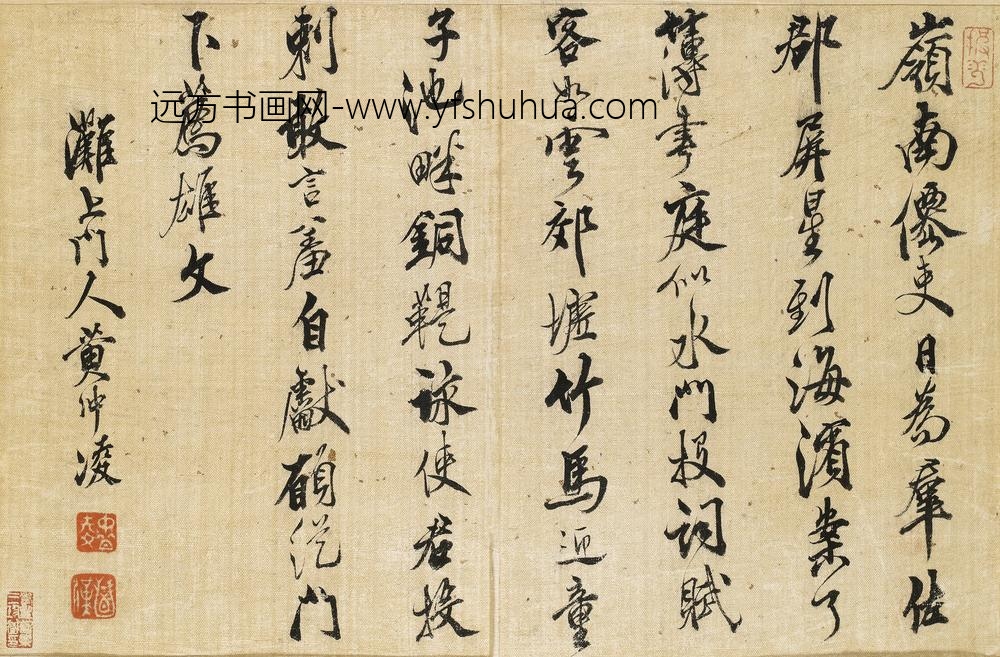 嶺南僊吏日為羣佐
郡屏星到海濱案了
簿書庭似水門投詞賦
客如雲郊壚竹馬迎童
子池畔銅鞮詠使君投
刺敢言羞自獻願從門
下薦雄文
灘上門人黃仲凌
远方书画网-www.yfshuhua.com